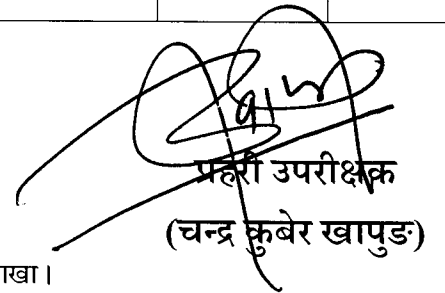 प्रहरी उपरीक्षक
(चन्द्र कुबेर खापुङ)
ाखा।